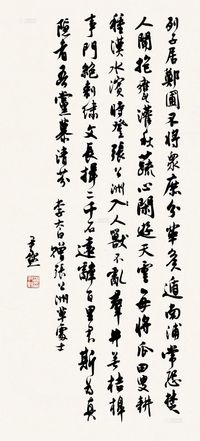 列子居鄭圃不將衆庶分革侯遁南浦常恐楚
人聞抱甕灌秋蔬心閒遊天雲每將瓜田叟耕
種漢水濱時登張公洲入獸不亂羣井無桔槔
事門絕刺繡文長揖二千石遠辭百里君斯為真
隱者吾黨慕清芬 李太白贈張公洲革處士
尹默